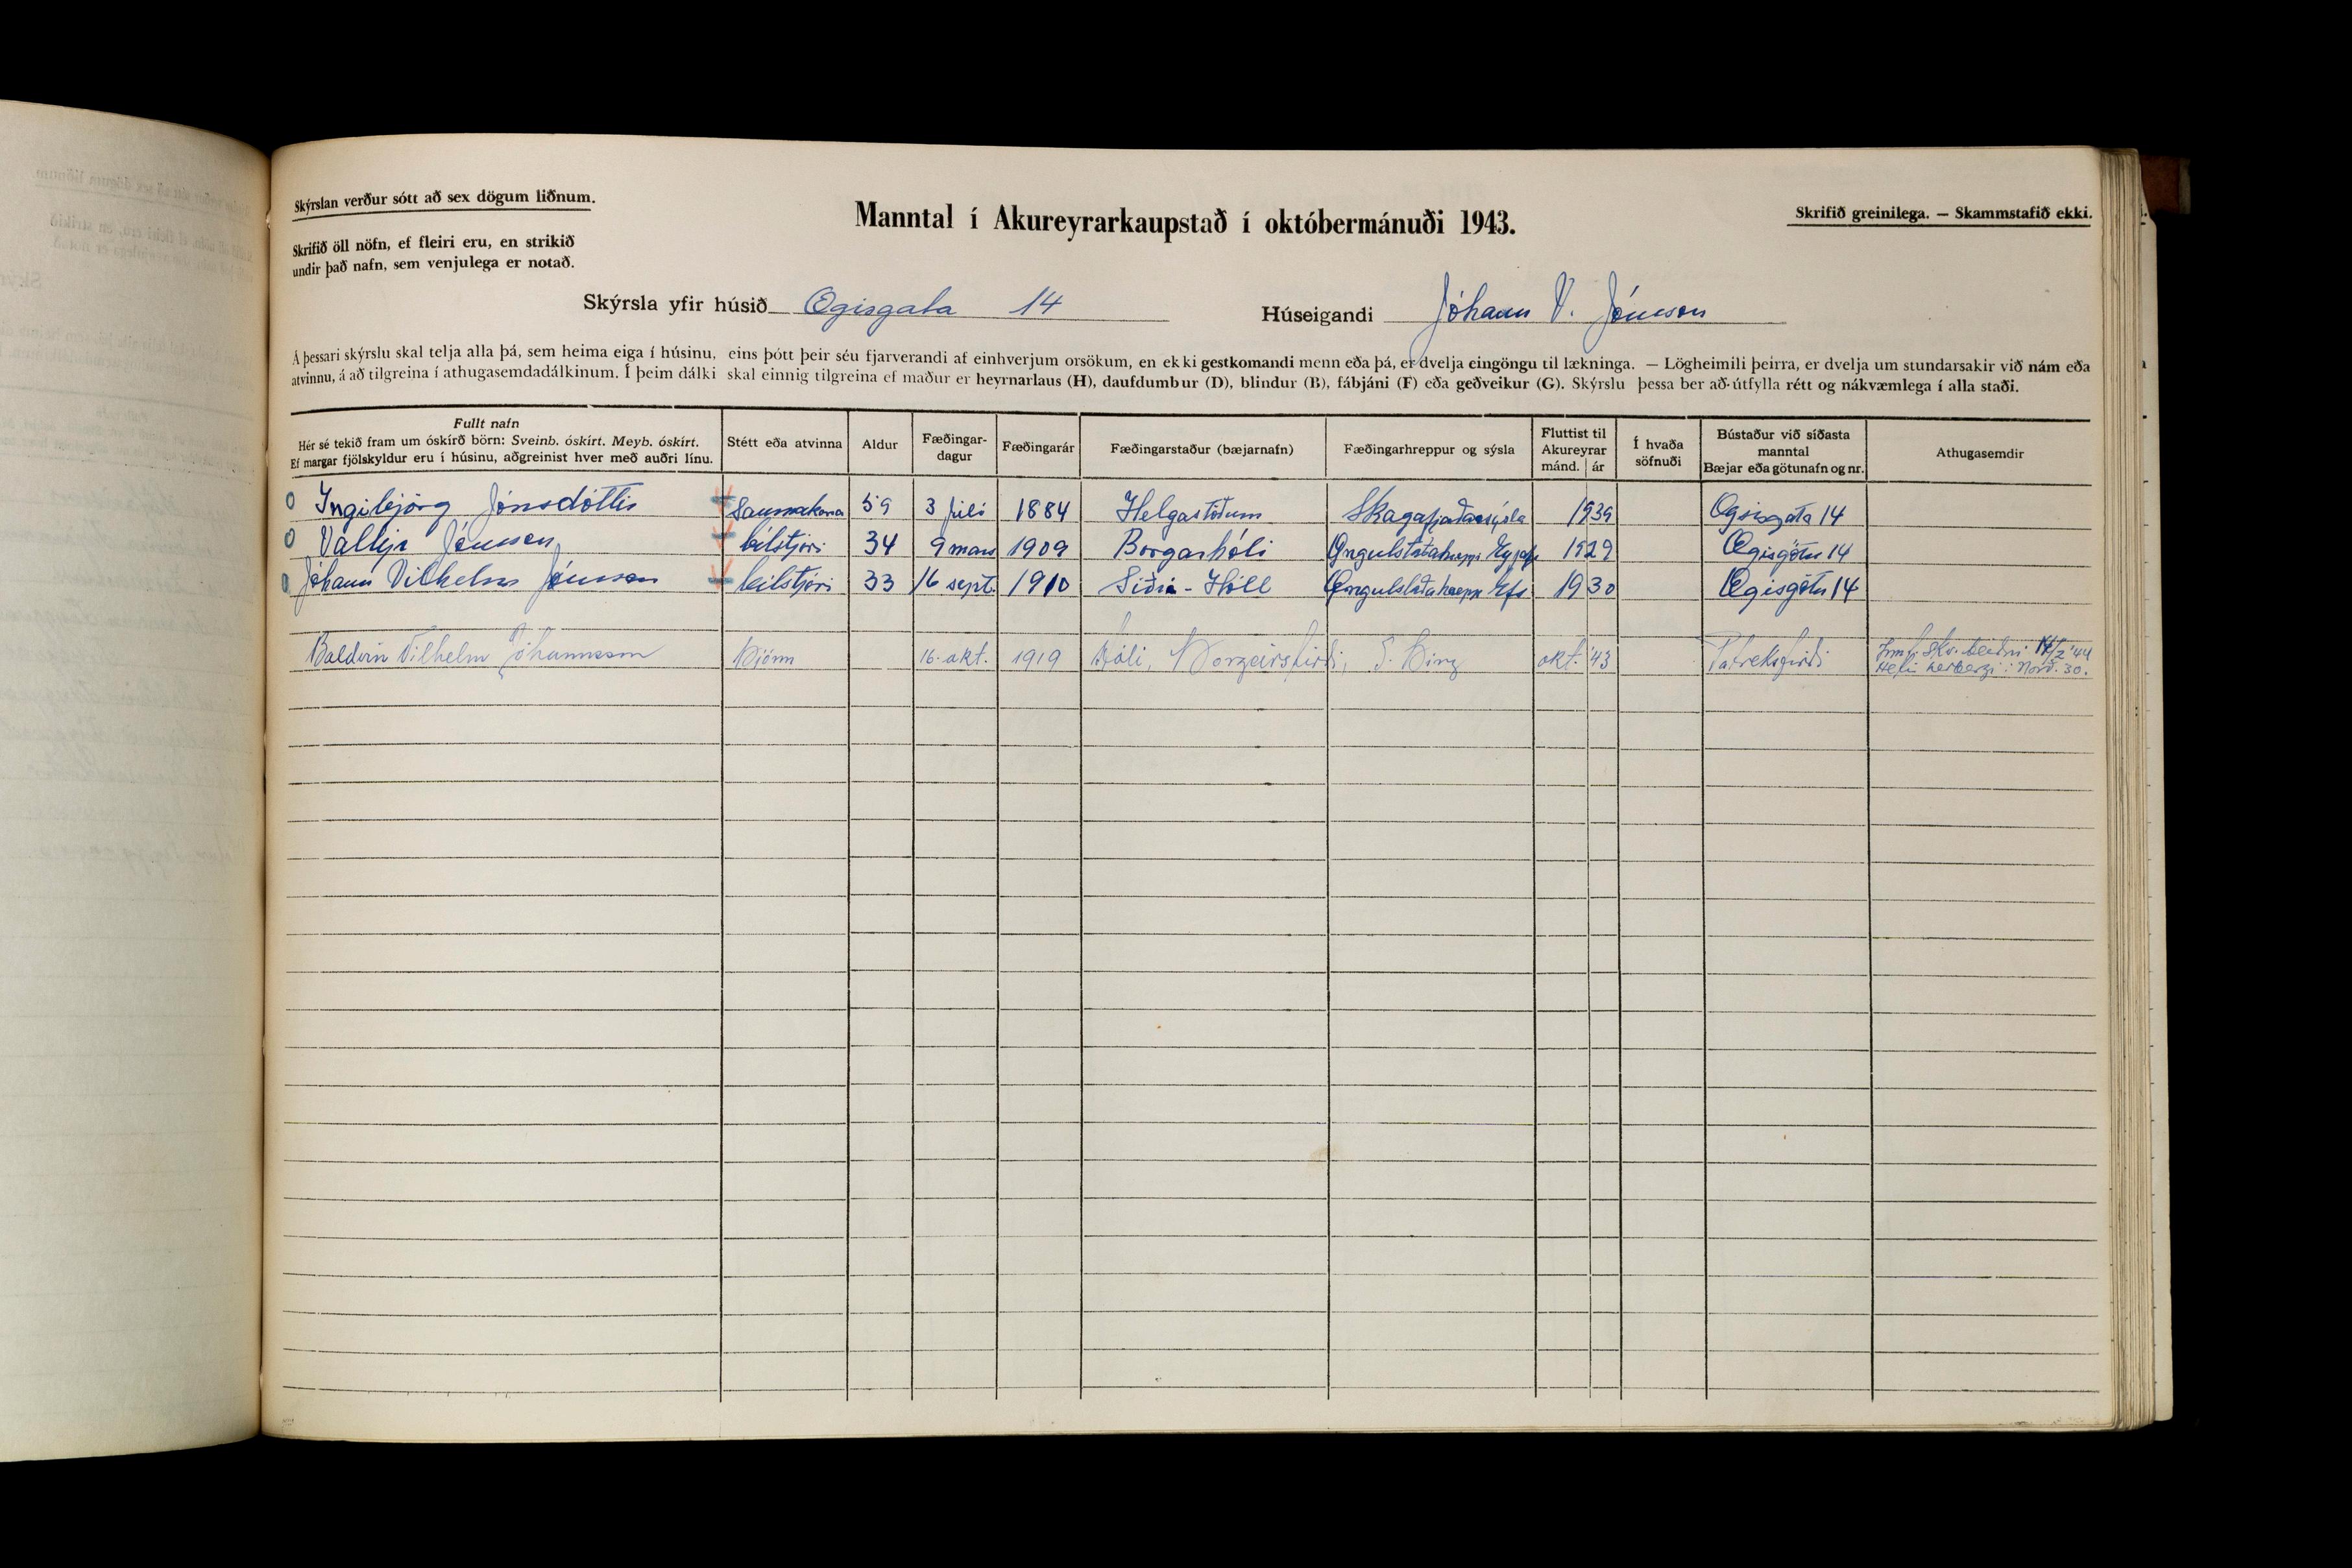 Skýrslan verður sótt að sex dögum liðnum.
Manntal í Akureyrarkaupstað í októbermánuði 1943.
Skrifið greinilega. — Skammstafið ekki.
Skrifið öll nöfn, ef fleiri eru, en strikið
undir það nafn, sem venjulega er notað.
Skýrsla yfir húsið Ægisgata 14
Húseigandi Jóhann V. Jónsson
Á þessari skýrslu skal telja alla þá, sem heima eiga í húsinu, eins þótt þeir séu fjarverandi af einhverjum orsökum, en ekki gestkomandi menn eða þá, er dvelja eingöngu til lækninga. — Lögheimili þeirra, er dvelja um stundarsakir við nám eða
atvinnu, á að tilgreina í athugasemdadálkinum. Í þeim dálki skal einnig tilgreina ef maður er heyrnarlaus (H), daufdumbur (D), blindur (B), fábjáni (F) eða geðveikur (G). Skýrslu þessa ber að útfylla rétt og nákvæmlega í alla staði.
Fullt nafn
Hér sé tekið fram um óskírð börn: Sveinb. óskírt. Meyb. óskírt.
Ef margar fjölskyldur eru í húsinu, aðgreinist hver með auðri línu.
Stétt eða atvinna
Aldur
Fæðingar-
dagur
Fæðingarár
Fæðingarstaður (bæjarnafn)
Fæðingarhreppur og sýsla
Fluttist til
Akureyrar
mánd. ár
Í hvaða
söfnuði
Bústaður við síðasta
manntal
Bæjar eða götunafn og nr.
Athugasemdir
Ingibjörg Jónsdóttir Saumakona 59 3 júlí 1884 Helgastöðum Skagafjaðarsýsla 1939 Ægisgata 14
Jónsson bílstjóri 34 9 mars 1909 Borgarhóli Öngulstaðahreppi 1929 Ægisgötu 14
Jóhann Vilhelm Jónsson bílstjóri 33 16 sept. 1910 Öngulstaðahrepp 1930 Ægisgötu 14
Baldvin Vilhelm Jóhannsson Þjónn 16. okt. 1919 S. Þing okt. '43 Patreksfirði